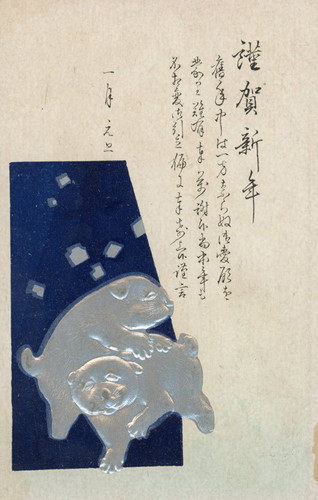 謹賀新年
舊年中は一方ならぬ御愛顧を
蒙り難有奉萬謝候尚本年も
不相變御引立之偏に奉希上候謹言
一月元旦